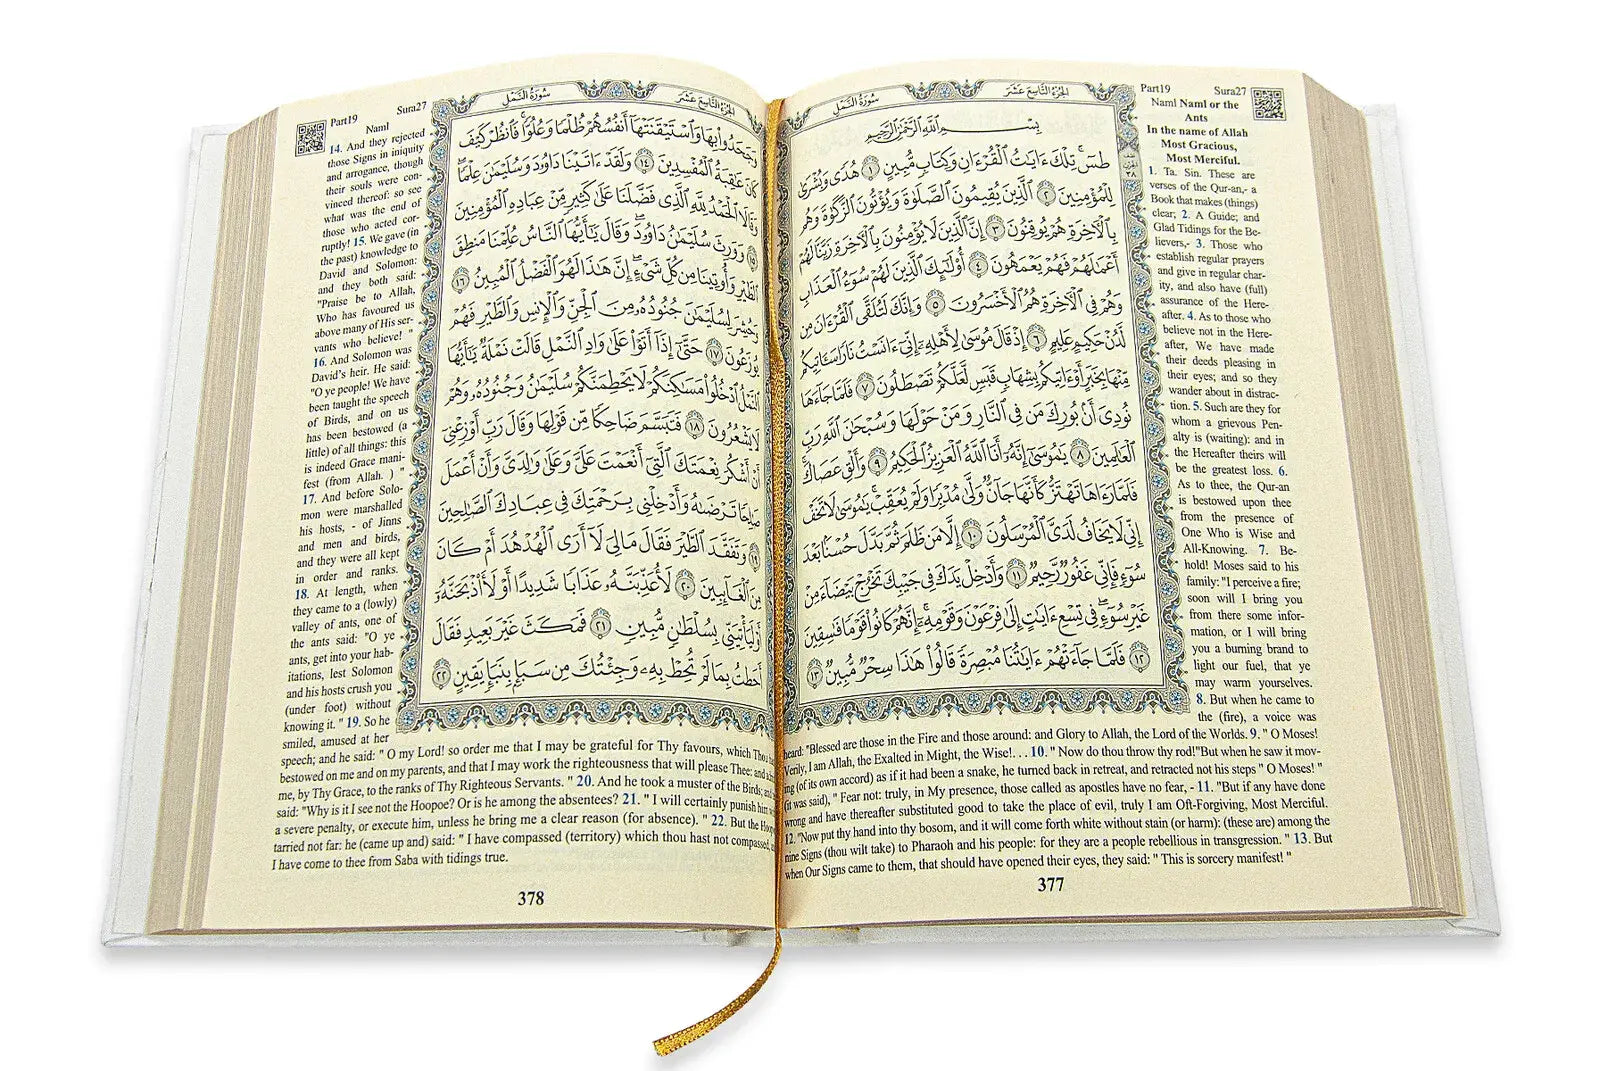 Part19 Sura27
الجُزْءُ التَّاسِعَ عَشَرَ سُورَةُ النَّمْلِ
بِسْمِ ٱللَّهِ ٱلرَّحْمَٰنِ ٱلرَّحِيمِ
طسٓ ۚ تِلْكَ ءَايَٰتُ ٱلْقُرْءَانِ وَكِتَابٍ مُّبِينٍ ١ هُدًى وَبُشْرَىٰ
لِلْمُؤْمِنِينَ ٢ ٱلَّذِينَ يُقِيمُونَ ٱلصَّلَوٰةَ وَيُؤْتُونَ ٱلزَّكَوٰةَ وَهُم
بِٱلْءَاخِرَةِ هُمْ يُوقِنُونَ ٣ إِنَّ ٱلَّذِينَ لَا يُؤْمِنُونَ بِٱلْءَاخِرَةِ زَيَّنَّا لَهُمْ
أَعْمَٰلَهُمْ فَهُمْ يَعْمَهُونَ ٤ أُو۟لَٰٓئِكَ ٱلَّذِينَ لَهُمْ سُوٓءُ ٱلْعَذَابِ
وَهُمْ فِى ٱلْءَاخِرَةِ هُمُ ٱلْأَخْسَرُونَ ٥ وَإِنَّكَ لَتُلَقَّى ٱلْقُرْءَانَ مِن
لَّدُنْ حَكِيمٍ عَلِيمٍ ٦ إِذْ قَالَ مُوسَىٰ لِأَهْلِهِۦٓ إِنِّىٓ ءَانَسْتُ نَارًا سَـَٔاتِيكُم
مِّنْهَا بِخَبَرٍ أَوْ ءَاتِيكُم بِشِهَابٍ قَبَسٍ لَّعَلَّكُمْ تَصْطَلُونَ ٧ فَلَمَّا جَآءَهَا
نُودِىَ أَنۢ بُورِكَ مَن فِى ٱلنَّارِ وَمَنْ حَوْلَهَا وَسُبْحَٰنَ ٱللَّهِ رَبِّ
ٱلْعَٰلَمِينَ ٨ يَٰمُوسَىٰٓ إِنَّهُۥٓ أَنَا ٱللَّهُ ٱلْعَزِيزُ ٱلْحَكِيمُ ٩ وَأَلْقِ عَصَاكَ ۚ
فَلَمَّا رَءَاهَا تَهْتَزُّ كَأَنَّهَا جَآنٌّ وَلَّىٰ مُدْبِرًا وَلَمْ يُعَقِّبْ ۚ يَٰمُوسَىٰ لَا تَخَفْ
إِنِّى لَا يَخَافُ لَدَىَّ ٱلْمُرْسَلُونَ ١٠ إِلَّا مَن ظَلَمَ ثُمَّ بَدَّلَ حُسْنًۢا بَعْدَ
سُوٓءٍ فَإِنِّى غَفُورٌ رَّحِيمٌ ١١ وَأَدْخِلْ يَدَكَ فِى جَيْبِكَ تَخْرُجْ بَيْضَآءَ مِنْ
غَيْرِ سُوٓءٍ ۖ فِى تِسْعِ ءَايَٰتٍ إِلَىٰ فِرْعَوْنَ وَقَوْمِهِۦٓ ۚ إِنَّهُمْ كَانُوا۟ قَوْمًا فَٰسِقِينَ
١٢ فَلَمَّا جَآءَتْهُمْ ءَايَٰتُنَا مُبْصِرَةً قَالُوا۟ هَٰذَا سِحْرٌ مُّبِينٌ ١٣
Naml Naml or the
Ants
In the name of Allah
Most Gracious,
Most Merciful.
1. Ta. Sin. These are
verses of the Qur-an,- a
Book that makes (things)
clear; 2. A Guide; and
Glad Tidings for the Be-
lievers,- 3. Those who
establish regular prayers
and give in regular char-
ity, and also have (full)
assurance of the Here-
after. 4. As to those who
believe not in the Here-
after, We have made
their deeds pleasing in
their eyes; and so they
wander about in distrac-
tion. 5. Such are they for
whom a grievous Pen-
alty is (waiting): and in
the Hereafter theirs will
be the greatest loss. 6.
As to thee, the Qur-an
is bestowed upon thee
from the presence of
One Who is Wise and
All-Knowing. 7. Be-
hold! Moses said to his
family: "I perceive a fire;
soon will I bring you
from there some infor-
mation, or I will bring
you a burning brand to
light our fuel, that ye
may warm yourselves.
8. But when he came to
the (fire), a voice was
heard: "Blessed are those in the Fire and those around: and Glory to Allah, the Lord of the Worlds. 9. " O Moses!
Verily, I am Allah, the Exalted in Might, the Wise!. . . 10. " Now do thou throw thy rod!"But when he saw it mov-
ing (of its own accord) as if it had been a snake, he turned back in retreat, and retracted not his steps " O Moses! "
(it was said), " Fear not: truly, in My presence, those called as apostles have no fear, - 11. "But if any have done
wrong and have thereafter substituted good to take the place of evil, truly I am Oft-Forgiving, Most Merciful.
12. "Now put thy hand into thy bosom, and it will come forth white without stain (or harm): (these are) among the
nine Signs (thou wilt take) to Pharaoh and his people: for they are a people rebellious in transgression. " 13. But
when Our Signs came to them, that should have opened their eyes, they said: " This is sorcery manifest! "
377
Part19 Sura27
الجُزْءُ التَّاسِعَ عَشَرَ سُورَةُ النَّمْلِ
وَجَحَدُوا۟ بِهَا وَٱسْتَيْقَنَتْهَآ أَنفُسُهُمْ ظُلْمًا وَعُلُوًّا ۚ فَٱنظُرْ كَيْفَ
كَانَ عَٰقِبَةُ ٱلْمُفْسِدِينَ ١٤ وَلَقَدْ ءَاتَيْنَا دَاوُۥدَ وَسُلَيْمَٰنَ عِلْمًا ۖ
وَقَالَا ٱلْحَمْدُ لِلَّهِ ٱلَّذِى فَضَّلَنَا عَلَىٰ كَثِيرٍ مِّنْ عِبَادِهِ ٱلْمُؤْمِنِينَ
١٥ وَوَرِثَ سُلَيْمَٰنُ دَاوُۥدَ ۖ وَقَالَ يَٰٓأَيُّهَا ٱلنَّاسُ عُلِّمْنَا مَنطِقَ
ٱلطَّيْرِ وَأُوتِينَا مِن كُلِّ شَىْءٍ ۖ إِنَّ هَٰذَا لَهُوَ ٱلْفَضْلُ ٱلْمُبِينُ ١٦
وَحُشِرَ لِسُلَيْمَٰنَ جُنُودُهُۥ مِنَ ٱلْجِنِّ وَٱلْإِنسِ وَٱلطَّيْرِ فَهُمْ
يُوزَعُونَ ١٧ حَتَّىٰٓ إِذَآ أَتَوْا۟ عَلَىٰ وَادِ ٱلنَّمْلِ قَالَتْ نَمْلَةٌ يَٰٓأَيُّهَا
ٱلنَّمْلُ ٱدْخُلُوا۟ مَسَٰكِنَكُمْ لَا يَحْطِمَنَّكُمْ سُلَيْمَٰنُ وَجُنُودُهُۥ وَهُمْ
لَا يَشْعُرُونَ ١٨ فَتَبَسَّمَ ضَاحِكًا مِّن قَوْلِهَا وَقَالَ رَبِّ أَوْزِعْنِىٓ
أَنْ أَشْكُرَ نِعْمَتَكَ ٱلَّتِىٓ أَنْعَمْتَ عَلَىَّ وَعَلَىٰ وَٰلِدَىَّ وَأَنْ أَعْمَلَ
صَٰلِحًا تَرْضَىٰهُ وَأَدْخِلْنِى بِرَحْمَتِكَ فِى عِبَادِكَ ٱلصَّٰلِحِينَ
١٩ وَتَفَقَّدَ ٱلطَّيْرَ فَقَالَ مَالِىَ لَآ أَرَى ٱلْهُدْهُدَ أَمْ كَانَ
مِنَ ٱلْغَآئِبِينَ ٢٠ لَأُعَذِّبَنَّهُۥ عَذَابًا شَدِيدًا أَوْ لَأَا۟ذْبَحَنَّهُۥٓ
أَوْ لَيَأْتِيَنِّى بِسُلْطَٰنٍ مُّبِينٍ ٢١ فَمَكَثَ غَيْرَ بَعِيدٍ فَقَالَ
أَحَطتُ بِمَا لَمْ تُحِطْ بِهِۦ وَجِئْتُكَ مِن سَبَإٍۭ بِنَبَإٍ يَقِينٍ ٢٢
Naml
14. And they rejected
those Signs in iniquity
and arrogance, though
their souls were con-
vinced thereof: so see
what was the end of
those who acted cor-
ruptly! 15. We gave (in
the past) knowledge to
David and Solomon:
and they both said:
"Praise be to Allah,
Who has favoured us
above many of His ser-
vants who believe! "
16. And Solomon was
David's heir. He said:
"O ye people! We have
been taught the speech
of Birds, and on us
has been bestowed (a
little) of all things: this
is indeed Grace mani-
fest (from Allah. ) "
17. And before Solo-
mon were marshalled
his hosts, - of Jinns
and men and birds,
and they were all kept
in order and ranks.
18. At length, when
they came to a (lowly)
valley of ants, one of
the ants said: "O ye
ants, get into your hab-
itations, lest Solomon
and his hosts crush you
(under foot) without
knowing it. " 19. So he
smiled, amused at her
speech; and he said: " O my Lord! so order me that I may be grateful for Thy favours, which Thou
bestowed on me and on my parents, and that I may work the righteousness that will please Thee: and
me, by Thy Grace, to the ranks of Thy Righteous Servants. " 20. And he took a muster of the Birds; and
said: "Why is it I see not the Hoopoe? Or is he among the absentees? 21. " I will certainly punish him
a severe penalty, or execute him, unless he bring me a clear reason (for absence). " 22. But the
tarried not far: he (came up and) said: " I have compassed (territory) which thou hast not compassed,
I have come to thee from Saba with tidings true.
378